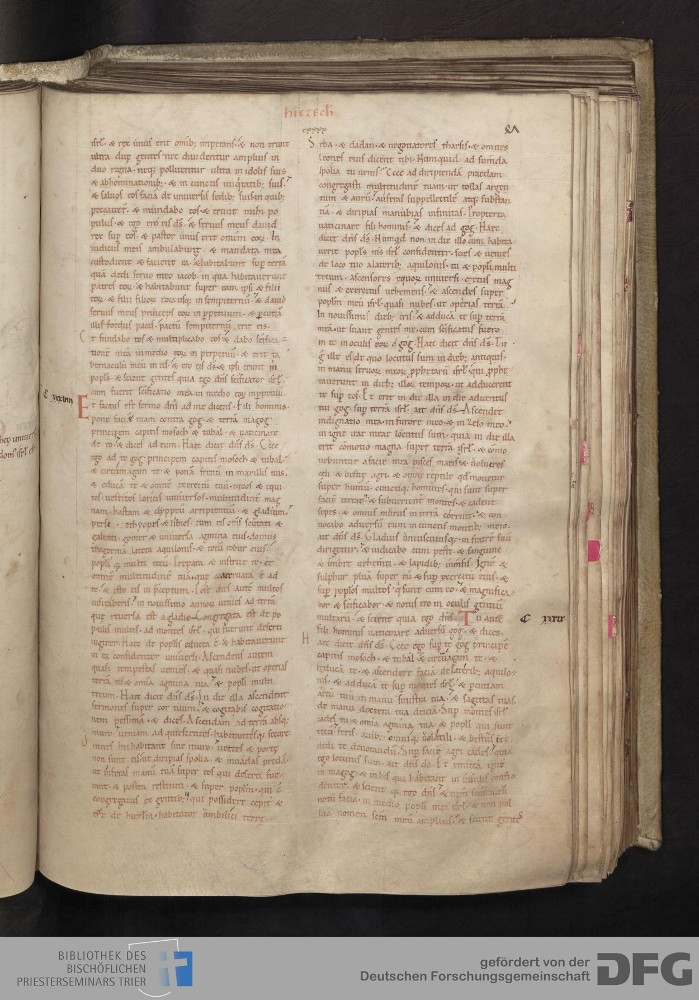 hiezech
isrl. & rex unus erit omnib; imperans. & non erunt
ultra duę gentes nec dividentur amplius in
duo regna. neq; polluentur ultra in idolis suis
& abhominationib; & in cunctis iniqtatib; suis.
& salvos eos faciā de universis sedib; suis in quib;
peccaver̄. & mundabo eos. & erunt mihi po
pulus. & ego ero eis d̄s. & servus meus david
rex sup eos. & pastor unus erit omium eor̄. In
iudiciis meis ambulabunt. & mandata mea
custodient & facient ea. & habitabunt sup terrā
quā dedi servo meo iacob. in qua habitaverunt
patres eor̄. & habitabunt super eam ipsi & filii
eor̄. & filii filiorum eor̄ usq; in sempiternū. & david
servus meus princeps eor̄ in perpetuum. & pcutiā
illis foedus pacis. pactū sempiternū erit eis.
Et fundabo eos & multiplicabo eos. & dabo scifica
tionē meā in medio eor̄ in perpetuū. & erit ta
bernaculū meū in eis. & ero eis d̄s. & ipsi erunt m
popls. & scient gentes quia ego dn̄s scificator isrl.
cum fuerit scificatio mea in medio eor̄ in ppetuū.
C xxxviii
Et factus est sermo dn̄i ad me dicens. Fili hominis
pone faciē tuam contra gog. & terrā magog
principem capitis mosoch & tubal. & vaticinare
de eo. & dices ad eum. Haec dicit dn̄s d̄s. Ecce
ego ad te gog principem capitis mosoch & tubal.
& circumagam te. & ponā frenū in maxillis tuis.
& educā te & omnē exercitū tuū. equos & equi
tes vestitos loricis universos. multitudinē mag
nam. hastam & clyppeū arripientiū. & gladium.
persę. ęthyopes & libies cum eis om̄s scutati &
galeati. gomer & universa agmina eius. domus
thogorma latera aquilonis. & totū robur eius.
popliq; multi tecū. Prepara & instrue te. &
omnē multitudinē tuā. quę coacervata ē ad
te. & esto eis in pręceptum. Post dies multos
visitaberis. in novissimo annor̄ venies ad terrā
quę reversa est a gladio. congregata est de po
pulis multis. ad montes isrl. qui fuerunt deserti
iugiter. Haec de poplis educta ē. & habitaverunt
in ea confidenter universi. Ascendens autem
quasi tempestas venies. & quasi nubes. ut operias
terrā. tu & omia agmina tua. & popli mul
ti tecum. Haec dicit dn̄s d̄s. In die illa ascendent
sermones super cor tuum. & cogitabis cogitatio
nem pessimā. & dices. Ascendam ad terrā absq;
muro. veniam ad quiescentes. habitantesq; secure.
Om̄nes hi habitant sine muro. vectes & portę
non sunt eis. ut diripias spolia. & invadas predā.
ut inferas manū tuā super eos qui deserti fue
runt. & postea restituti. & super poplm. qui ē
congregatus ex gentib; qui possidere cepit &
esse & habitator umbilici terrę
Saba. & dadan. & negotiatores tharsis. & omnes
leones eius dicent tibi. Numquid ad sumenda
spolia tu venis? Ecce ad diripiendā praedam
congregasti multitudinē tuam. ut tollas argen
tum & aurū. auferas suppellectilē atq; substan
tiā. & diripias manubias infinitas. Propterea
vaticinare fili hominis. & dices ad gog. Haec
dicit dn̄s d̄s. Numqd non in die illo cum habita
verit popls m̄s isrl confidenter. scies. & venies
de loco tuo a laterib; aquilonis. tu & popli multi
tecum. ascensores equor̄ universi. coetus mag
nus & exercitus vehemens. & ascendes super
poplm meū isrl. quasi nubes. ut operias terrā.
In novissimis dieb; eris. & adducā te sup terrā
meā. ut sciant gentes me. cum scificatus fuero
in te in oculis eor̄ o gog. Haec dicit dn̄s d̄s. Tu
g̊ ille es. de quo locutus sum in dieb; antiquis.
in manu servor̄ meor̄ pphetarū isrl. qui pphe
taverunt in dieb; illor̄ tempor̄. ut adducerem
te sup eos. Et erit in die illa in die adventus
gog sup terrā isrl. ait dn̄s d̄s. Ascendet
indignatio mea in furore meo. & in zelo meo.
in igne irae meae locutus sum. quia in die illa
erit comotio magna super terrā isrl. & como
vebuntur a facie mea pisces maris. & volucres
celi. & bestię agri. & omne reptile qd movetur
super humū. cunctiq; homines. qui sunt super
faciē terrae. & subvertent montes. & cadent
sepes. & omnis murus in terrā corruet. & con
vocabo adversū eum in cunctis montib; meis.
ait dn̄s d̄s. Gladius uniuscuiusq; in fratrē suū
dirigetur. & iudicabo eum peste. & sanguine
& imbre vehementi. & lapidib; inmsis. Ignē &
sulphur pluā super eū & sup exercitū eius. &
sup poplos multos q sunt cum eo. & magnifica
bor & scificabor. & notus ero in oculis gentiū
multarū. & scient quia ego dn̄s. Tu autē
C xxxix
fili hominis vaticinare adversū gog. & dices.
Haec dicit dn̄s d̄s. Ecce ego sup te gog principē
capitis mosoch. & tubal. & circumagam te. &
educā te. & ascendere faciā de laterib; aquilo
nis. & adducā te sup montes isrl. & percutiam
arcū tuū in manu sinistra tua. & sagittas tuas
de manu dextera tua deiciā. Sup montes isrl
cades tu & omia agmina tua. & popli qui sunt
tecū. feris. avib; omniq; volatili. & bestiis terrę
dedi te devorandū. Sup faciē agri cades. quia
ego locutus sum. ait dn̄s d̄s. Et emittā ignē
in magog. & in his qui habitant in insulis confi
denter. & scient qa ego dn̄s. & nomen scm meū
notū faciā in medio popli mei isrl. & non pol
luā nomen scm meū amplius. & scient gentes
BIBLIOTHEK DES
BISCHÖFLICHEN
PRIESTERSEMINARS TRIER
gefördert von der
Deutschen Forschungsgemeinschaft
DFG